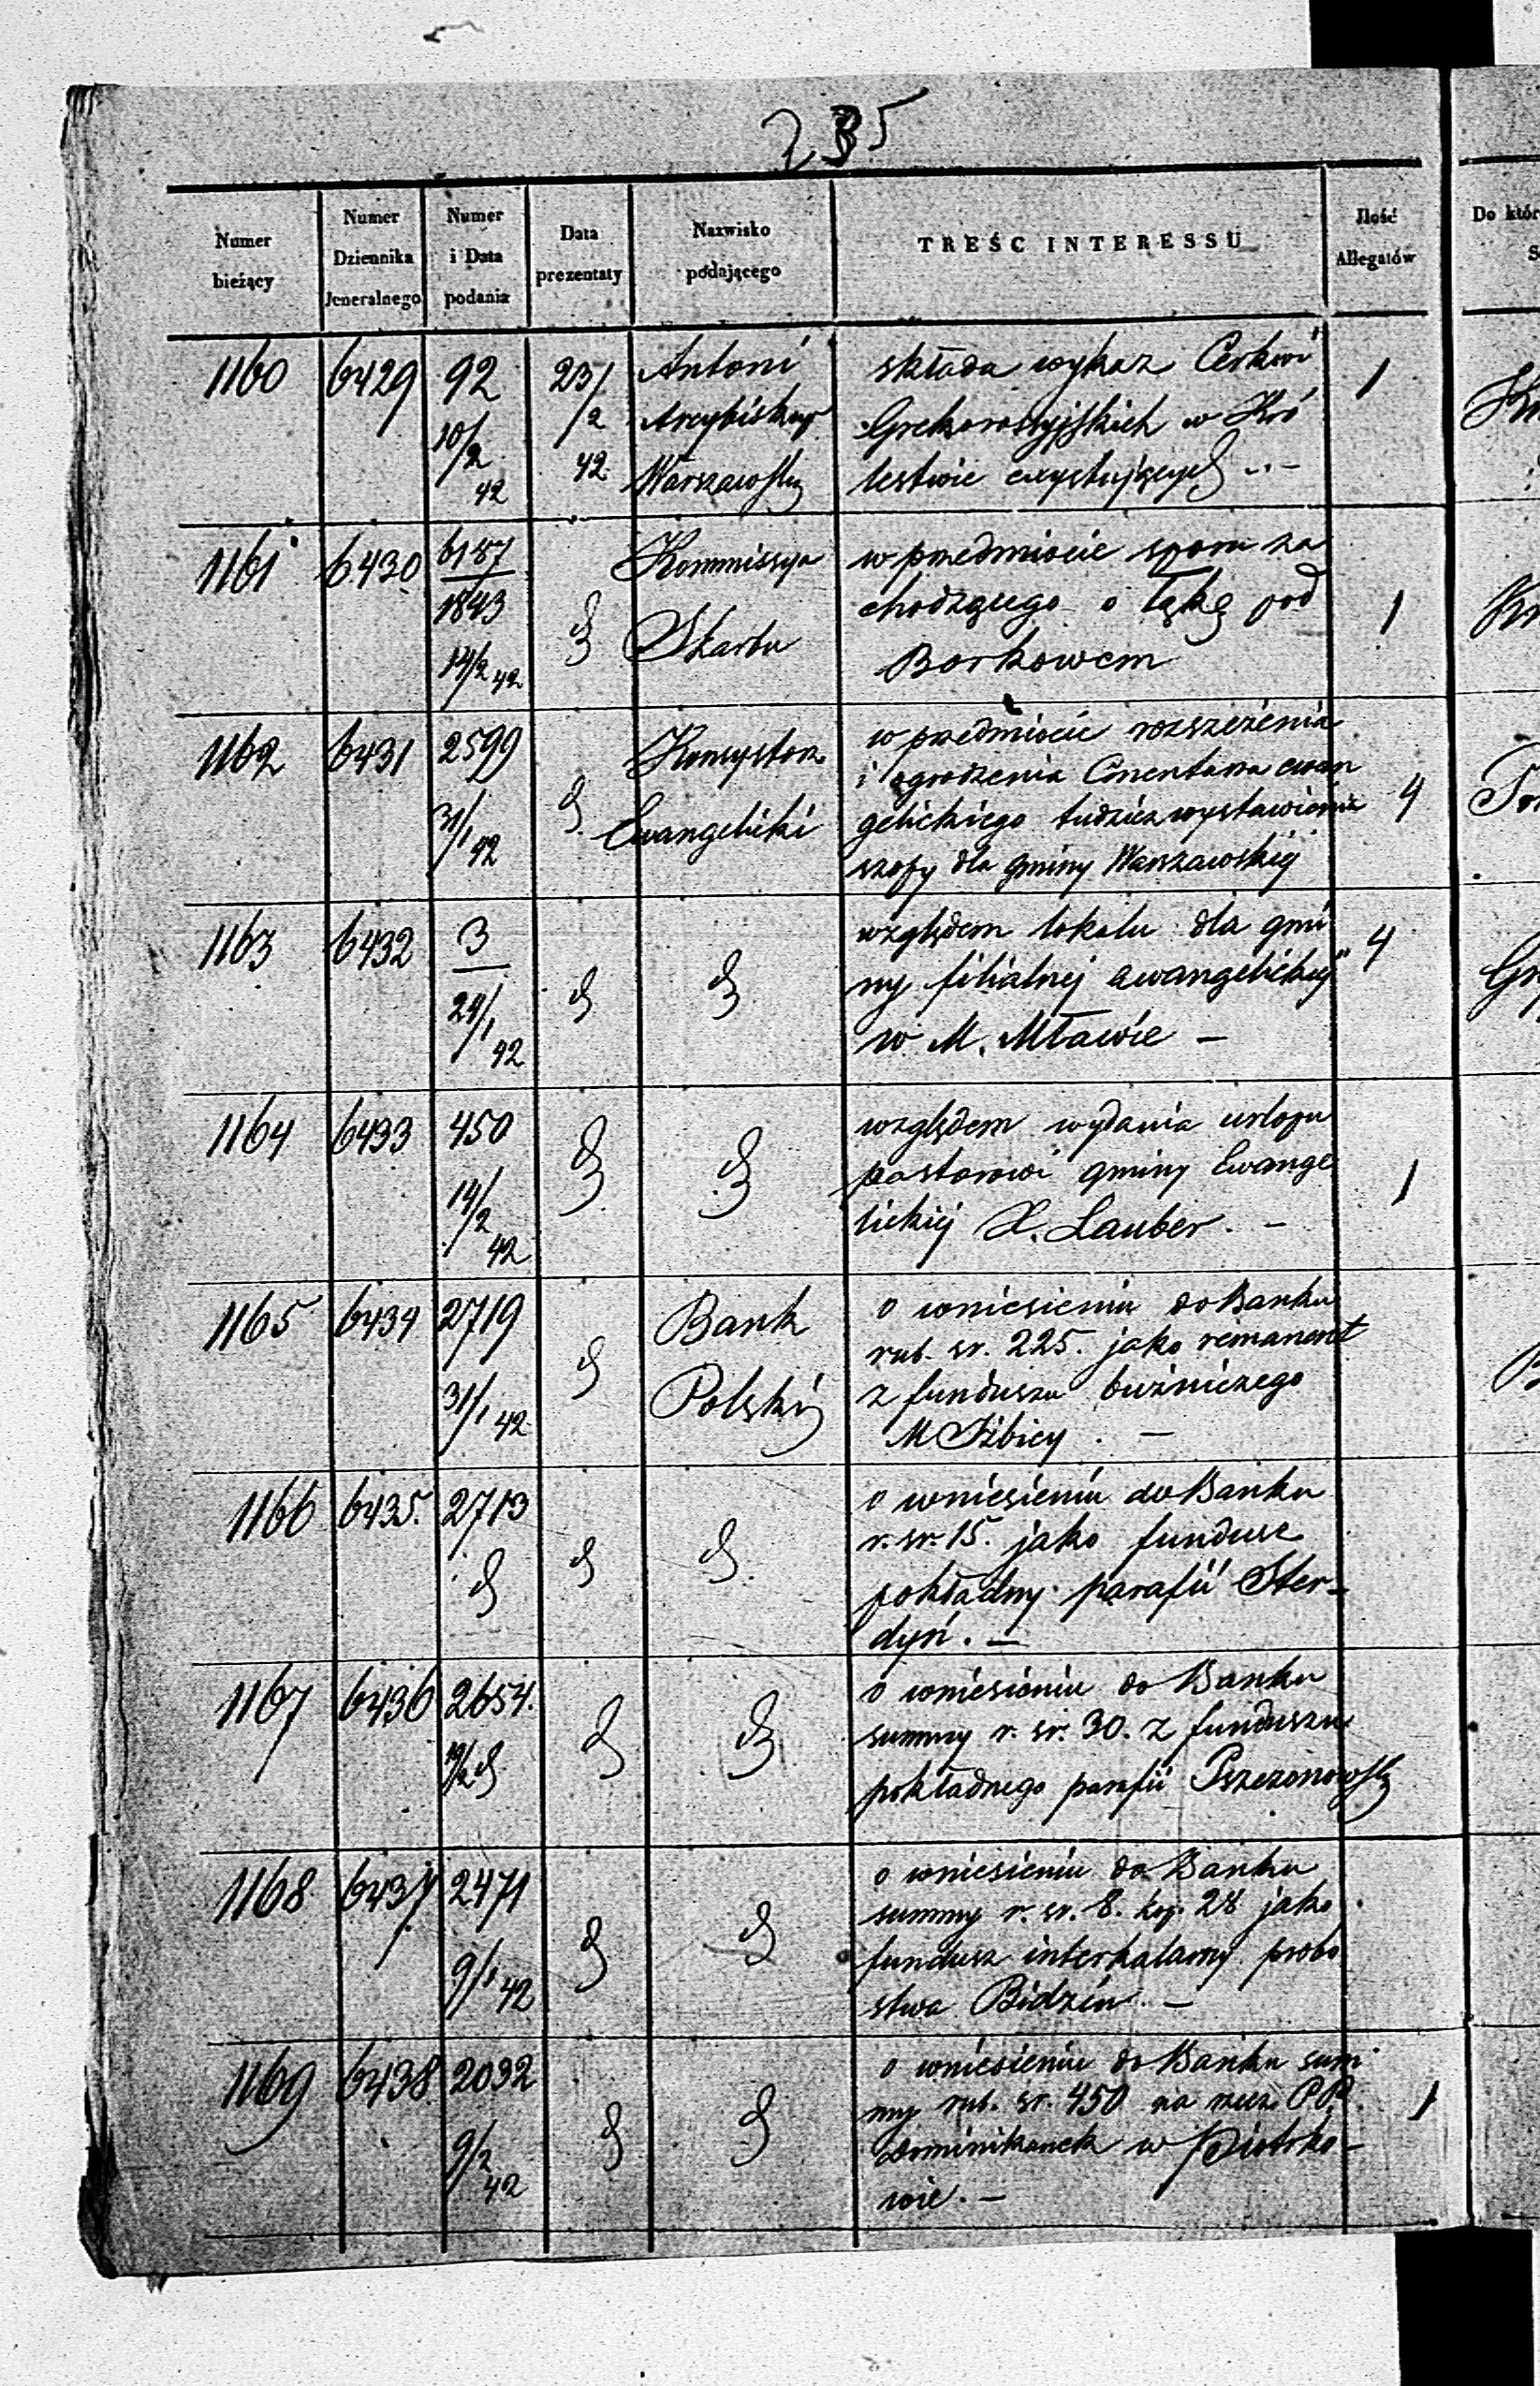 235
Numer bieżący
Numer Dziennika Jeneralnego
Numer i Data podania
Data prezentaty
Nazwisko podającego
TREŚC INTERESSU
Ilość Allegatów
Do któr
1160 6429 92 10/2 42 23/2 42
Antoni
Arcybiskup
Warszawski
składa wykaz Cerkwi
Grekorossyjskich w Kró
lestwie exystujących .. -
1
1161 6430 6187/1843 14/2 42
Kommissya
Skarbu
w przedmiocie sporu za
chodzącego o łąkę pod
Borkowem
1
1162 6431 2599 31/1 42
Konsystorz
Ewangelicki
w przedmiocie rozszeżenia
i ogrodzenia Cmentarza ewan
gelickiego tudzież wystawienia
szopy dla gminy Warszawskiej
4
1163 6432 3 24/1 42
względem lokalu dla gmi
ny filialnej ewangelickiej
w M. Mławie -
4
1164 6433 450 14/2 42
względem wydania urlopu
pastorowi gminy Ewange
lickiej X. Lauber. -
1
1165 6434 2719 31/1 42
Bank
Polski
o wniesieniu do Banku
rub. sr. 225. jako remanent
z funduszu bużniczego
M Iżbicy . -
1166 6435. 2713
o wniesieniu do Banku
r. sr. 15. jako fundusz
pokładny parafii Ster-
dyń. -
1167 6436 2654.
o wniesieniu do Banku
summy r. sr. 30. z funduszu
pokładnego parafii
1168 6437 2471 9/1 42
o wniesieniu do Banku
summy r. sr. 8. kop. 28 jako
fundusz interkalarny probo
stwa Bidzin. -
1169 6438 2032 9/2 42
o wniesieniu do Banku sum
my rub. sr. 450 na rzecz PP.
Dominikanek w Piotrko-
wie. -
1